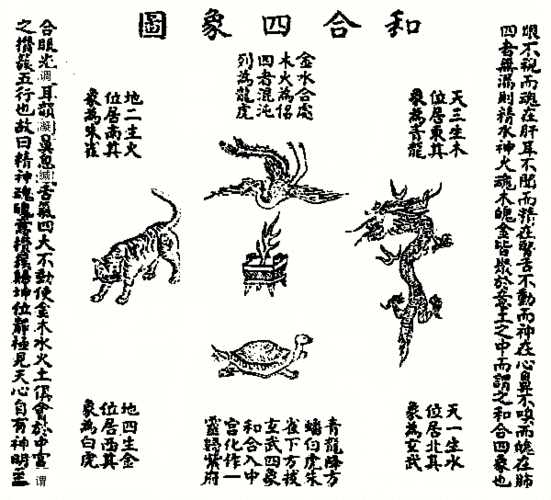 和合四象圖
眼不視而魂在肝耳不聞而精在腎舌不動而神在心鼻不嗅而魄在肺
四者無漏則精水神火魂木魄金皆聚於意土之中而謂之和合四象也
天三生木
位居東其
象為青龍
金水合處
木火為侶
四者混沌
列為龍虎
地二生火
位居南其
象為朱雀
天一生水
位居北其
象為玄武
青龍降方
蟠白虎朱
雀下方拔
玄武四象
和合入中
宮化作一
靈歸紫府
地四生金
位居西其
象為白虎
合眼光调耳韻凝鼻息緘舌氣四大不動使金木水火土俱會於中宮谓
之攢簇五行也故曰精神魂魄意攢簇歸坤位靜極見天心自有神明至